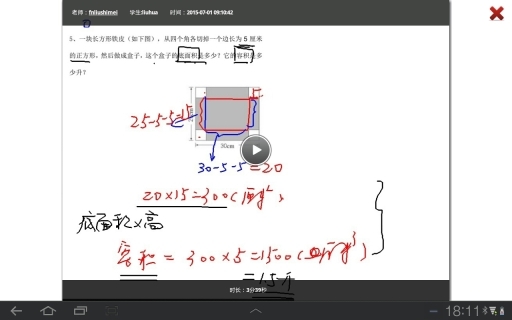 老师：fniiushimei 学生liuhua 时间：2015-07-01 09:10:42
5、一块长方形铁皮（如下图），从四个角各切掉一个边长为 5 厘米
的正方形，然后做成盒子，这个盒子的底面积是多少？它的容积是多
少升？
5
25-5-5=15
30cm
30-5-5=20
20×15=300(厘米²)
底面积×高
容积=300×5=1500(厘米³)
=1.5升
时长：3分39秒
18:11